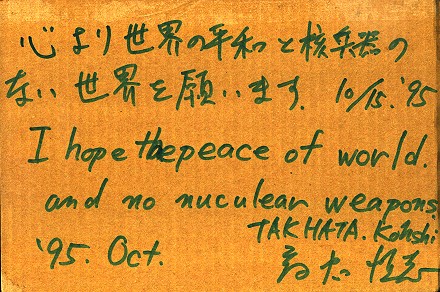 心より世界の平和と核兵器の
ない世界を願います. 10/15.'95
I hope the peace of world.
and no nuculear weapons.
TAKHATA. Kohshi
'95. Oct.